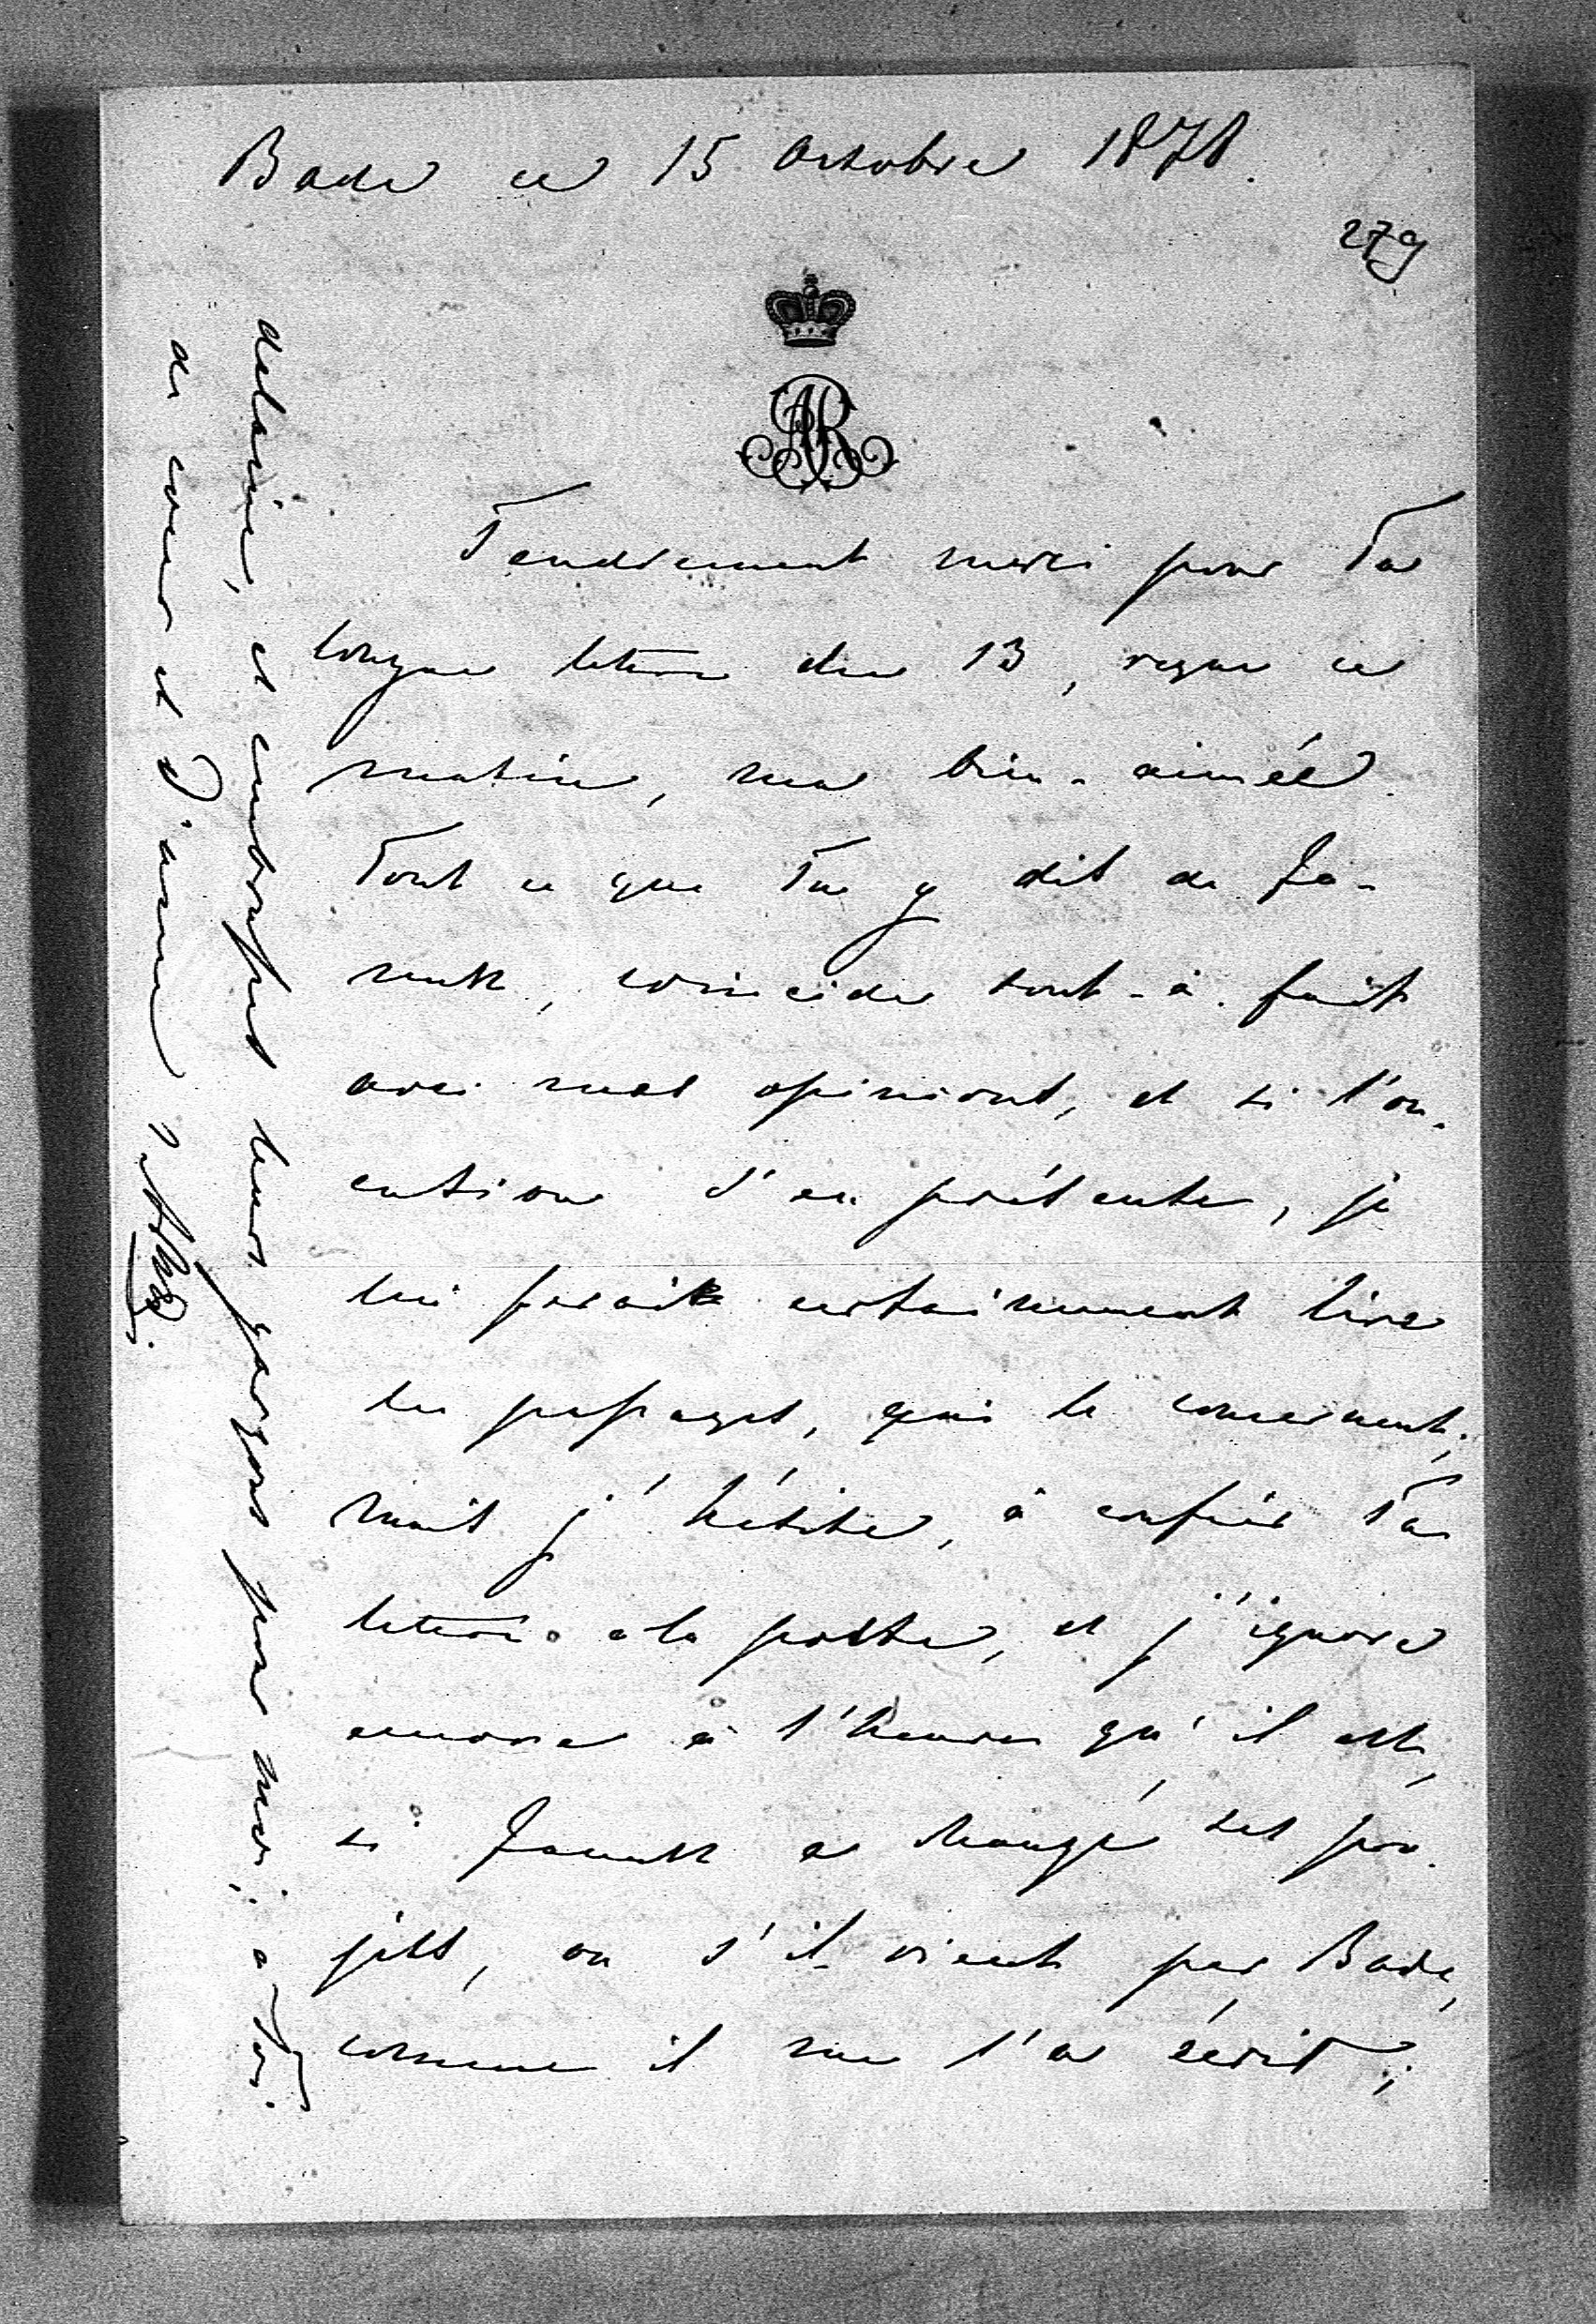 Bade ce 15 Octobre 1878.
279
Tendrement merci pour Ta
longue lettre du 13, reçue ce
matin, ma bien-aimée.
Tout ce que Tu y dis de Ja-
, coïncide tout-à-fait
avec mes opinions, et si l'oc-
casion s'en présente, je
lui ferais certainement lire
les passages, qui le concernent;
mais j'hésite, à confier Ta
lettre à la poste, et j'ignore
encore à l'heure qu'il est,
si a changé ses pro-
jets, ou s'il vient par Bade,
comme il me l'a écrit;
et embrasses leurs garçons pour moi; à Toi
de cœur et d'âme